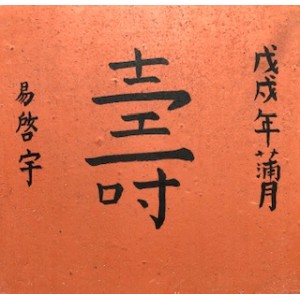 戊戌年蒲月
壽
易啓宇